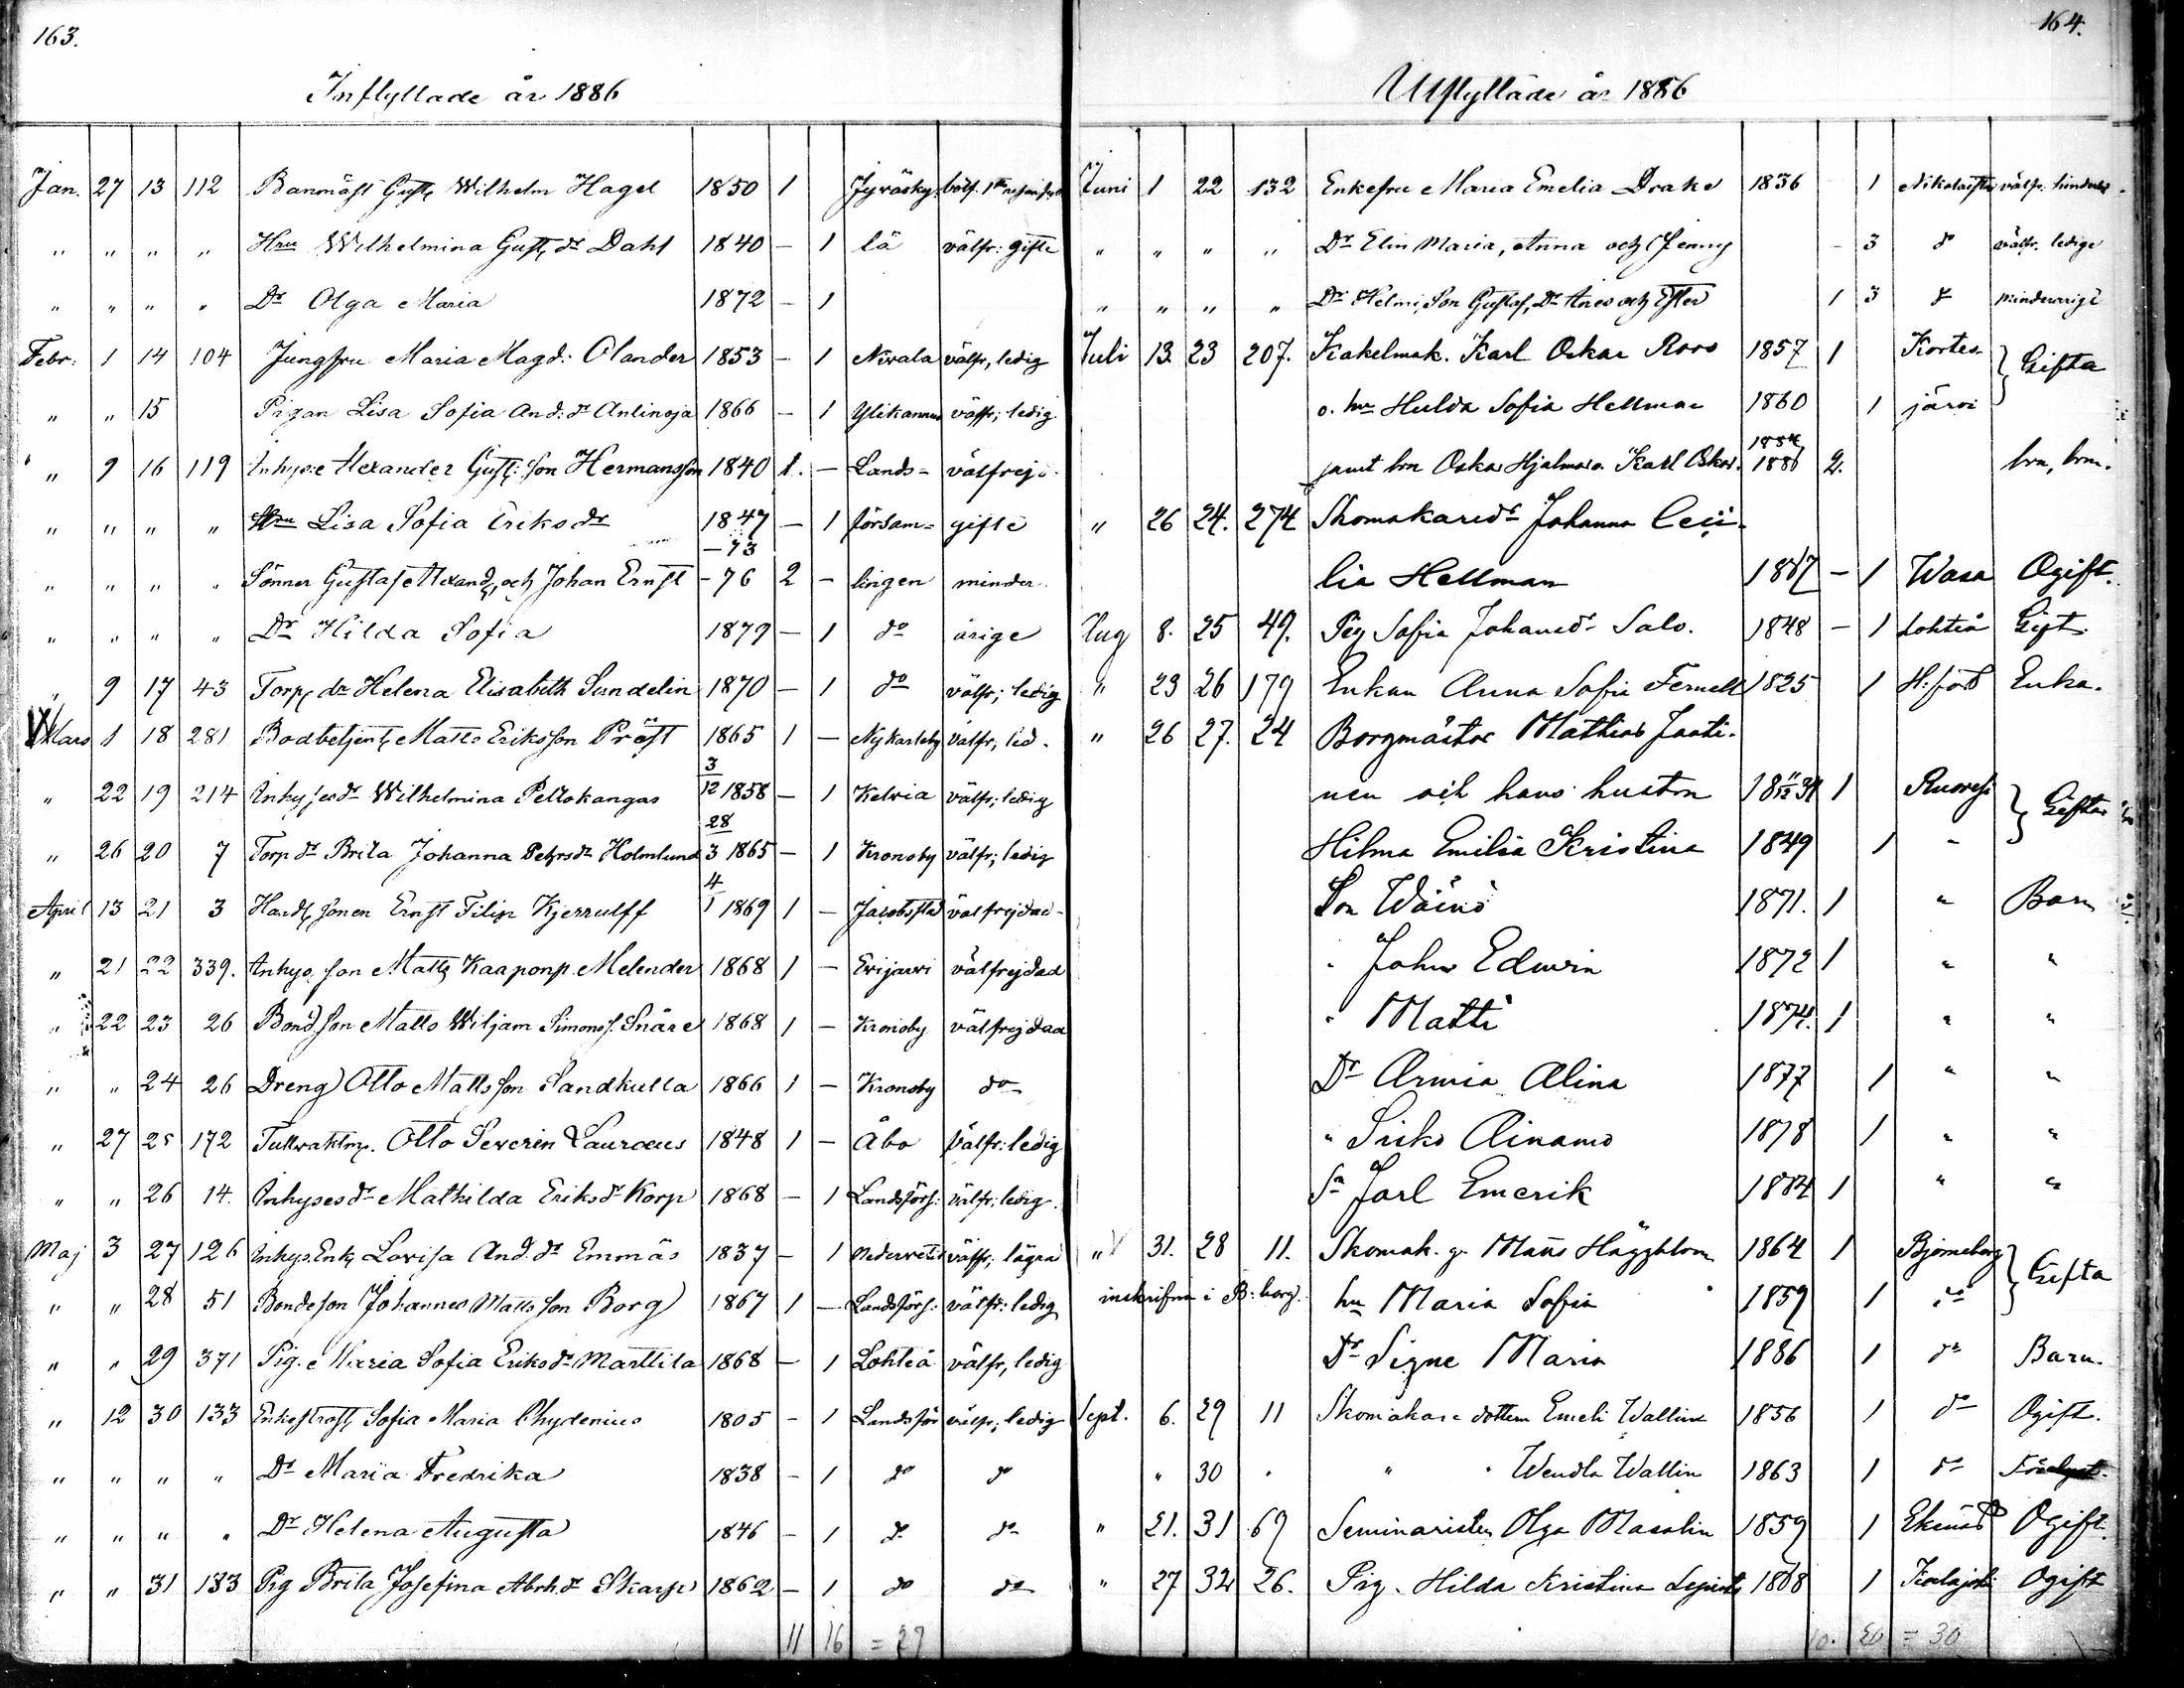 163.
Inflyttade år 1886
Jan. 27 13 112 Banmäst Gust. Wilhelm Hagel 1850 1 Jyväsky. välf.
" " " " Hru Wilhelmina Gust. dr Dahl 1840 - 1 lä välfr: gifte
" " " " Dr Olga Maria 1872 - 1
Febr. 1 14 104 Jungfru Maria Magd: Olander 1853 - 1 Nivala välfr, ledig
" " 15 Pigan Lisa Sofia And: dr Anlinoja 1866 - 1 Ylikannus välfr; ledig
" 9 16 119 Inhyse Alexander Gust: son Hermansson 1840 1. - Lands- välfrejd.
" " " " Hru Lisa Sofia Eriksdr 1847 - 1 försam= gifte
" " " " Sönner Gustaf Alexand. och Johan Ernst -73 -76 2 - lingen minder
" " " " Dr Hilda Sofia 1879 - 1 do årige
" 9 17 43 Torp. dr Helena Elisabeth Sundelin 1870 - 1 do välfr; ledig
Mars 1 18 281 Bodbetjent. Matts Eriksson Präst 1865 1 - Nykarleby välfr; led.
" 22 19 214 Inhysesdr Wilhelmina Peltokangas 3/12 1858 - 1 Kelvia välfr; ledig
" 26 20 7 Torp dr Brita Johanna Pehrsdr Holmlund 28/3 1865 - 1 Kronoby välfr; ledig
April 13 21 3 Handl. sonen Ernst Filip Kjerrulff 4/1 1869 1 - Jacobstad välfrejdad
" 21 22 339. Inhys. son Matts Kaaponp. Melender 1868 1 - Evijarvi välfrejdad
" 22 23 26 Bond son Matts Wiljam Simonss. Snåre 1868 1 - Kronoby välfrejdad
" " 24 26 Dreng Otto Mattsson Sandkulla 1866 1 - Kronoby do
" 27 25 172 Tullvaktm. Otto Severin Lauræus 1848 1 - Åbo Välfr: ledig
" " 26 14. Inhysesdr Mathilda Eriksdr Korp 1868 - 1 Landsförs: välfr: ledig.
Maj 3 27 126 Inhys. Enk. Lovisa And. dr Emmäs 1837 - 1 Nedervetil välfr; lägrad
" " 28 51 Bondeson Johannes Mattsson Borg 1867 1 - Landsförs: välfr: ledig
" " 29 371 Pig. Maria Sofia Eriksdr Marttila 1868 - 1 Lohteå välfr, ledig
" 12 30 133 Sofia Maria Chydenius 1805 - 1 Landsför välfr; ledig
" " " " Dr Maria Fredrika 1838 - 1 do do
" " " " Dr Helena Augusta 1846 - 1 do do
" " 31 133 Pig Brita Josefina Abrh. dr Skarp 1862 - 1 do do
11 16 = 27
164.
Utflyttade år 1886
Juni 1 22 132 Enkefru Maria Emelia Drake 1836 1 Nikolaistad välfr. hinderl.
" " " " Dr Elin Maria, Anna och Jenny - 3 do välfr. ledige
" " " " Dr Helmi, Son Gustaf, Dr Ines och Ester 1 3 do minderårige
Juli 13. 23 207. Kakelmak. Karl Oskar Roos 1857 1 Kortes- Gifta
o. hu Hulda Sofia Hellman 1860 1 järvi
samt brn Oskar Hjalmar o. Karl Oskar. 1884 1886 2. brn, brn.
" 26 24. 274 Skomakaredr Johanna Ceci-
lia Hellman 1867 - 1 Wasa Ogift.
Aug 8. 25 49. Pig Sofia Johansdr Salo. 1848 - 1 Lohteå Gift.
" 23 26 179 Enkan Anna Sofia Fernell 1825 1 H:fors Enka.
" 26 27. 24 Borgmästar Mathias Jaati-
nen och hans hustru 18 31 1 Ruovesi Gifta
Hilma Emilia Kristina 1849 1 "
Son Wäinö 1871. 1 " Barn
" John Edwin 1872 1 " "
" Matti 1874. 1 " "
Dr Armia Alina 1877 1 " "
" Sirko Ainamo 1878 1 " "
Sn Jarl Emerik 1884 1 " "
" 31. 28 11. Skomak. g. Måns Häggblom 1864 1 Björneborg Gifta
inskrifna i B:borg. hu Maria Sofia 1859 1 do
Dr Signe Maria 1886 1 do Barn.
Sept. 6. 29 11 Skomakare dottern Emeli Wallin 1856 1 do Ogift.
" 30 " " " Wendla Wallin 1863 1 do
" 21. 31 69 Seminaristen Olga Masalin 1859 1 Ekenäs Ogift
" 27 32 26. Pig. Hilda Kristina Lepistö 1868 1 Kalajoki Ogift
10. 20 = 30